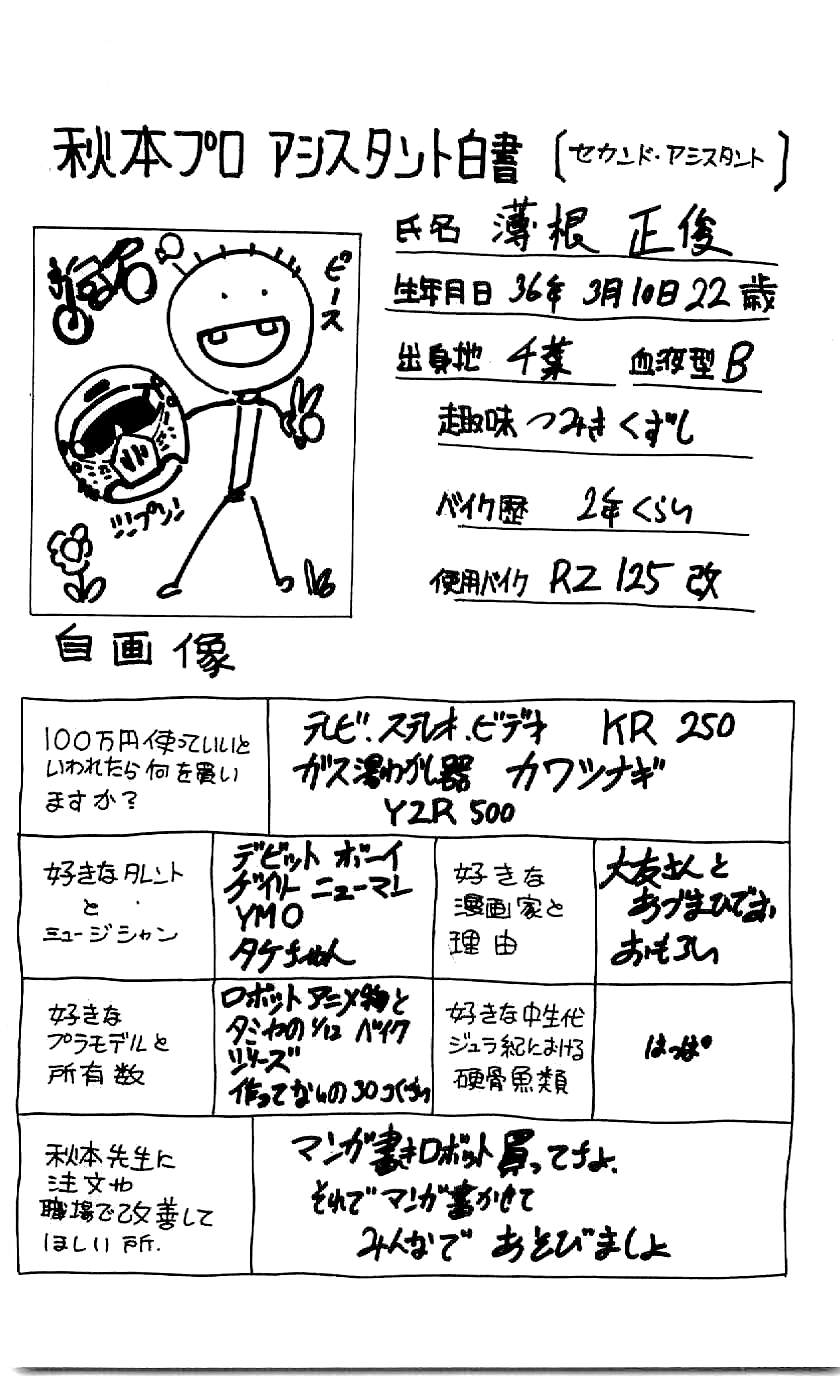 秋本プロ アシスタント白書 [セカンド・アシスタント]
ピース
プリン!!!
自画像
氏名 薄根 正俊
生年月日 36年 3月10日 22歳
出身地 千葉 血液型 B
趣味 つみきくずし
バイク歴 2年くらい
使用バイク RZ 125 改
100万円使っていいと
いわれたら何を買い
ますか?
テレビ.ステレオ.ビデオ KR 250
ガス湯わかし器 カワツナギ
YZR 500
好きなタレント
と
ミュージシャン
デビット ボーイ
ゲイリー ニューマン
YMO
タケちゃん
好きな
漫画家と
理由
大友さんと
あづまひでお
おもろい
好きな
プラモデルと
所有数
ロボットアニメ物と
タミヤの1/12 バイク
シリーズ
作ってないの30コくらい
好きな中生代
ジュラ紀における
硬骨魚類
はっぱ
秋本先生に
注文や
職場で改善して
ほしい所.
マンガ書きロボット買ってちょ.
それでマンガ書かせて
みんなで あそびましょ